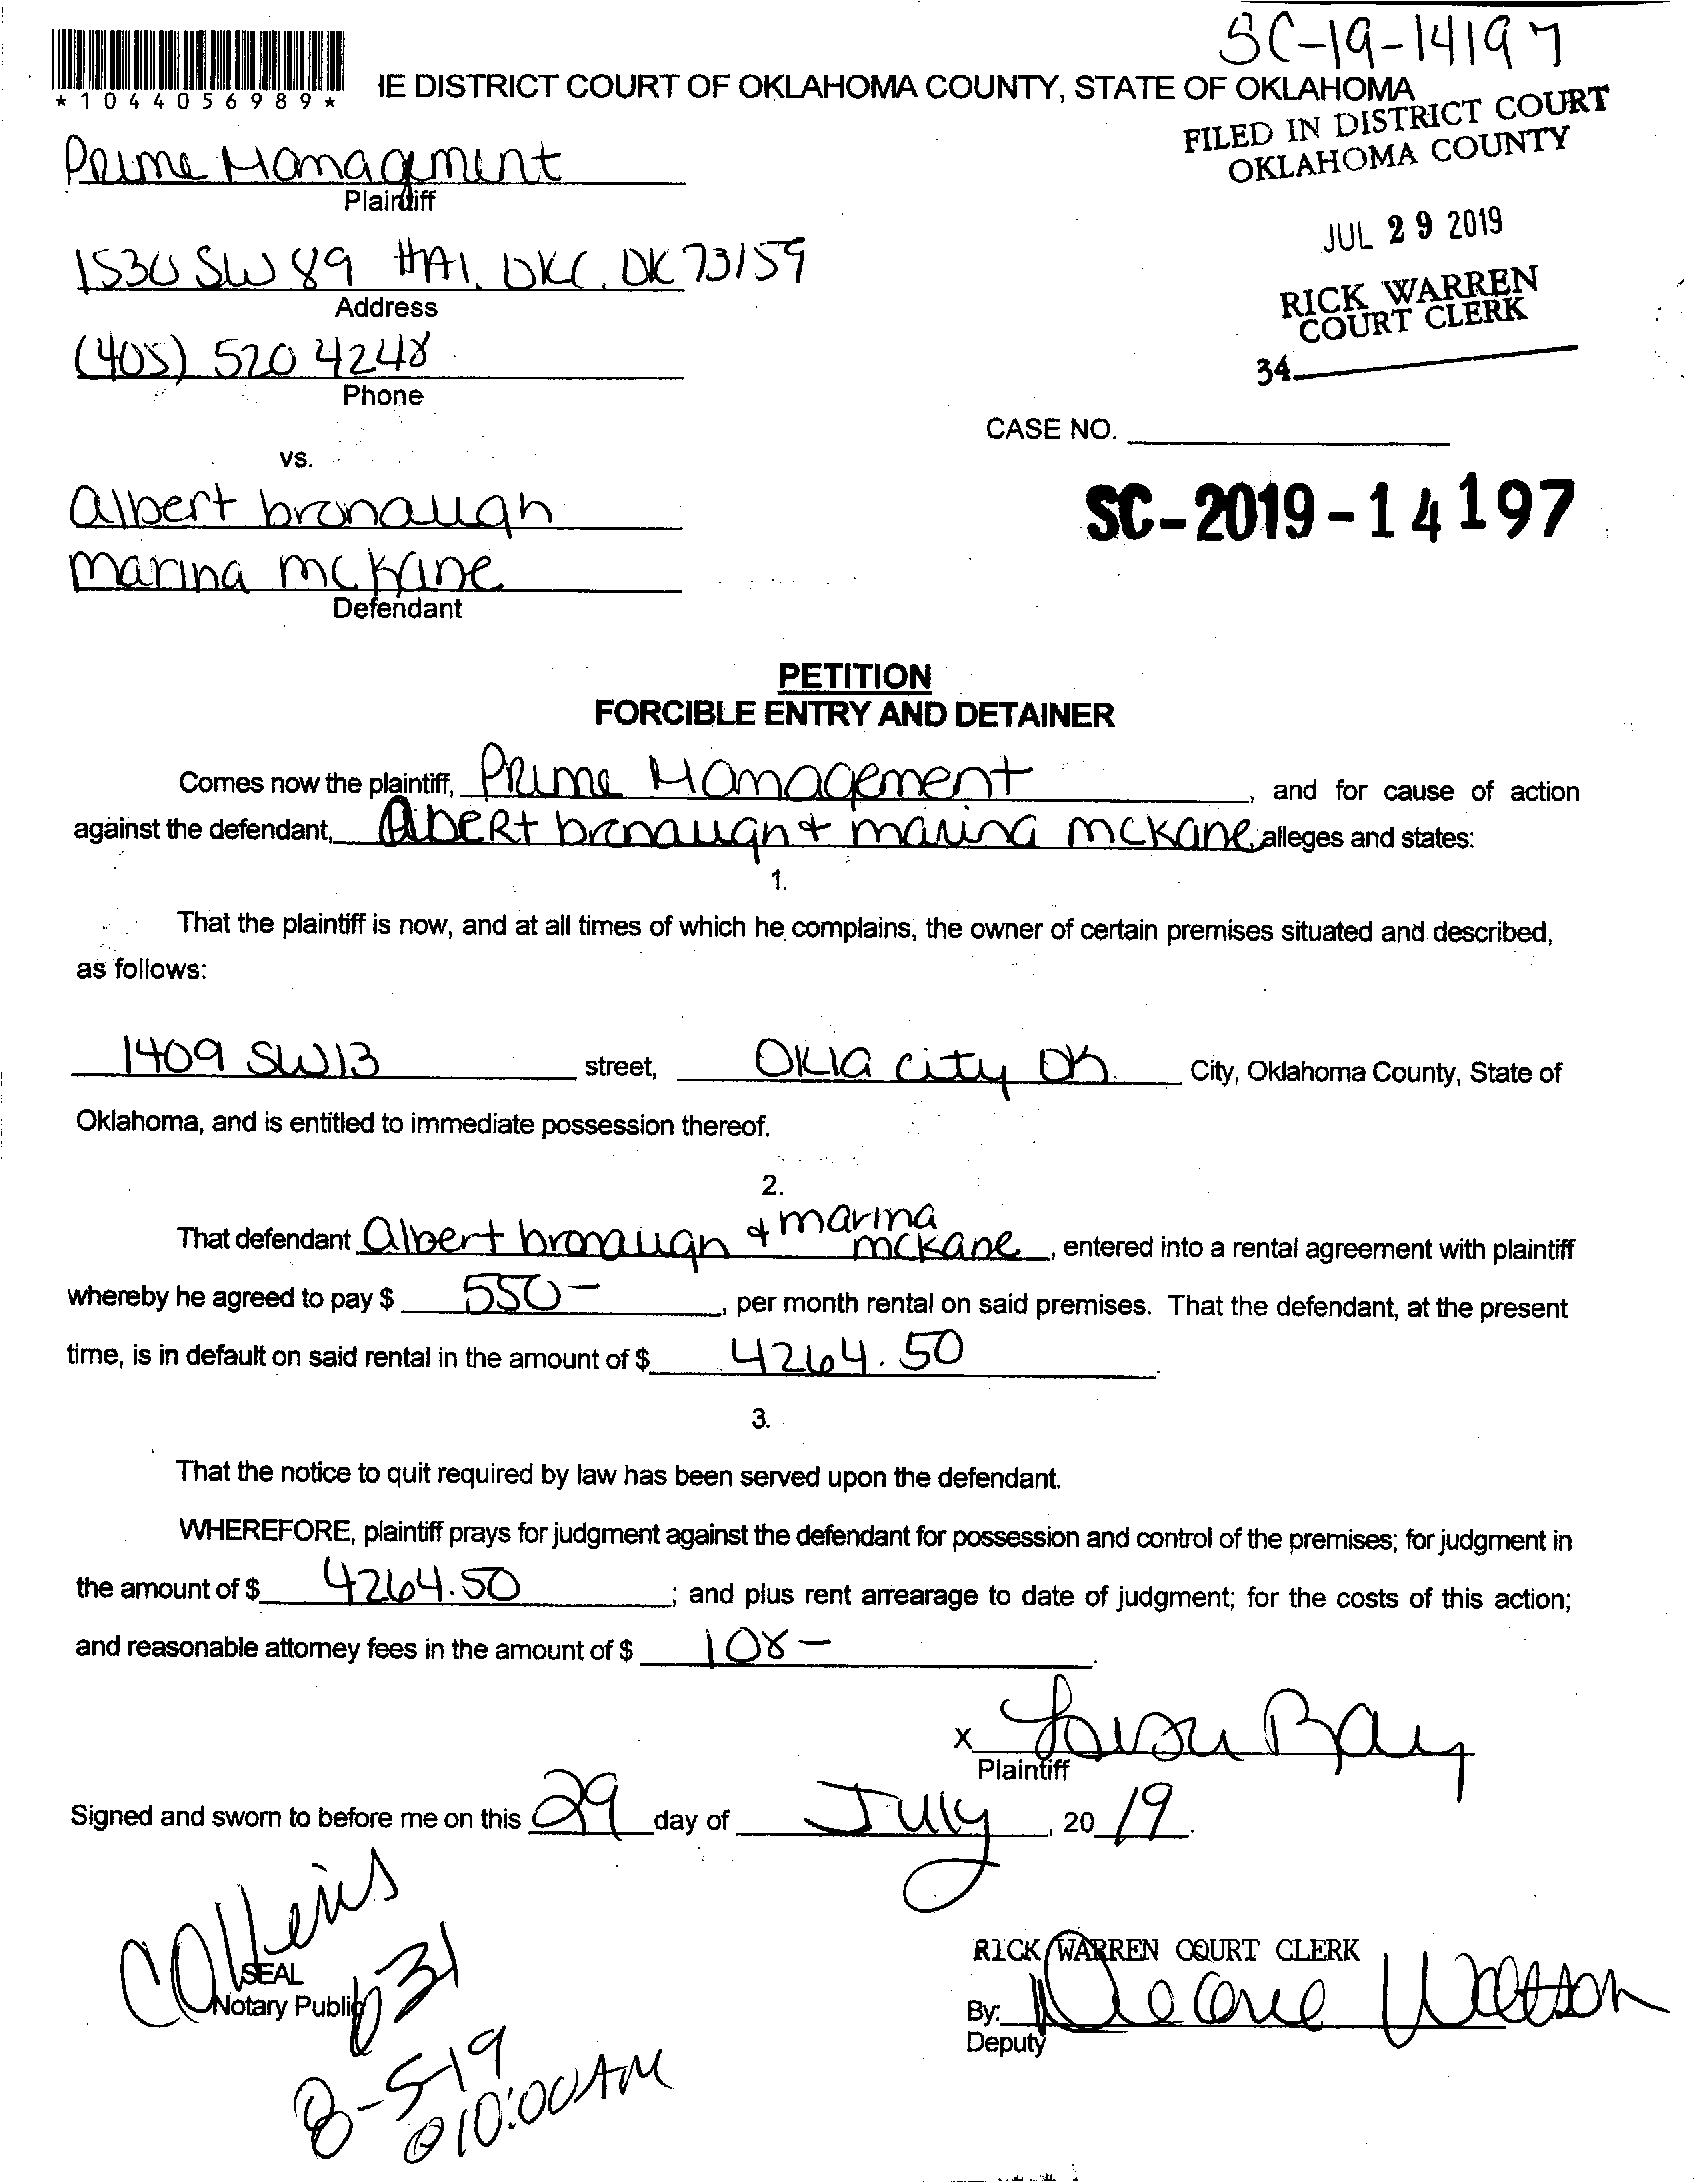 SC-19-14197
*1044056989*
IE DISTRICT COURT OF OKLAHOMA COUNTY, STATE OF OKLAHOMA
FILED IN DISTRICT COURT
OKLAHOMA COUNTY
Prime Management
Plaintiff
JUL 29 2019
1530 SW 89 #A1. OKC. OK 73159
Address
RICK WARREN
COURT CLERK
(405) 520 4248
Phone
34
CASE NO.
vs.
Albert bronaugh
SC-2019-14197
marina mckane
Defendant
PETITION
FORCIBLE ENTRY AND DETAINER
Comes now the plaintiff, Prime Management, and for cause of action
against the defendant, Albert bronaugh + marina mckane, alleges and states:
1.
That the plaintiff is now, and at all times of which he complains, the owner of certain premises situated and described,
as follows:
1409 SW 13 street, Okla city OK. City, Oklahoma County, State of
Oklahoma, and is entitled to immediate possession thereof.
2.
That defendant Albert bronaugh + marina mckane, entered into a rental agreement with plaintiff
whereby he agreed to pay $ 550-, per month rental on said premises. That the defendant, at the present
time, is in default on said rental in the amount of $ 4264.50.
3.
That the notice to quit required by law has been served upon the defendant.
WHEREFORE, plaintiff prays for judgment against the defendant for possession and control of the premises; for judgment in
the amount of $ 4264.50; and plus rent arrearage to date of judgment; for the costs of this action;
and reasonable attorney fees in the amount of $ 108-.
x
Plaintiff
Signed and sworn to before me on this 29 day of July, 20 19.
SEAL
Notary Public
631
RICK WARREN COURT CLERK
By: Watson
Deputy
8-5-19
@10:00AM